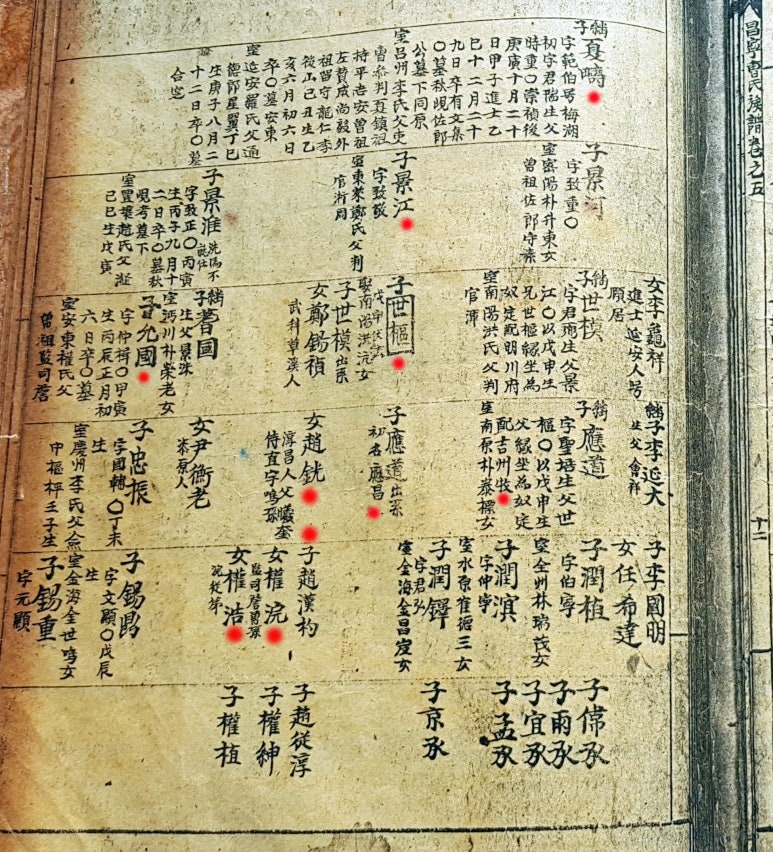 昌寧曺氏族譜卷之五
十二
繼子夏疇
字範伯号梅湖
初字君瑞生父
時重〇崇禎後
庚寅十月二十
日甲子進士乙
巳十二月二十
九日卒有文集
〇墓秋峴佐郎
公墓下同原
室呂州李氏父吏
曹參判夏鎮祖
持平志安曾祖
左贊成尚毅外
祖留守龍仁李
後山己丑生乙
亥六月初六日
卒〇墓安東
室延安羅氏父通
德郎星翼丁巳
生庚子八月二
十二日卒〇墓
合窆
子景河
字致重〇
室密陽朴升東女
曾祖佐郎守素
子景江
字致敬
室東萊鄭氏父判
官浙周
子景淮
字致正〇丙寅
生丙子九月十
二日卒〇墓秋
峴考墓下
室豐壤趙氏父
己巳生戊寅
女李龜祥
進士延安人号
願居
繼子世模
字君瑞生父景
江〇以戊申生
兄世樞緣坐為
奴定配明川府
室南陽洪氏父判
官
子世樞
娶南陽洪沆女
子世模出系
女鄭錫禎
武科草溪人
繼子著國
生父景洙
室沔川朴崇老女
子允國
字仲楫〇甲寅
生丙辰正月初
六日卒〇墓
室安東權氏父
曾祖監司詧
繼子李延大
生父會祥
繼子應道
字聖培生父世
樞〇以戊申生
父緣坐為奴定
配吉州牧
室南原朴泰標女
子應道出系
初名應昌
女趙銑
淳昌人父
侍直字鳴孫
女尹衡老
漆原人
子忠振
字國輔〇丁未
生
室慶州李氏父
中樞枰壬子生
子李國明
女任希達
子潤植
字伯寧
室全州林瑞茂女
子潤濱
字仲寧
室水原崔德三女
子潤鐸
字君弘
室金海金昌度女
子趙漢杓
女權浣
監司詧曾孫
女權浩
浣從弟
子錫鼎
字文顯〇戊辰
生
室金海金世鳴女
子錫重
字元顯
子偉承
子雨承
子宜承
子孟承
子京承
子趙從淳
子權紳
子權植